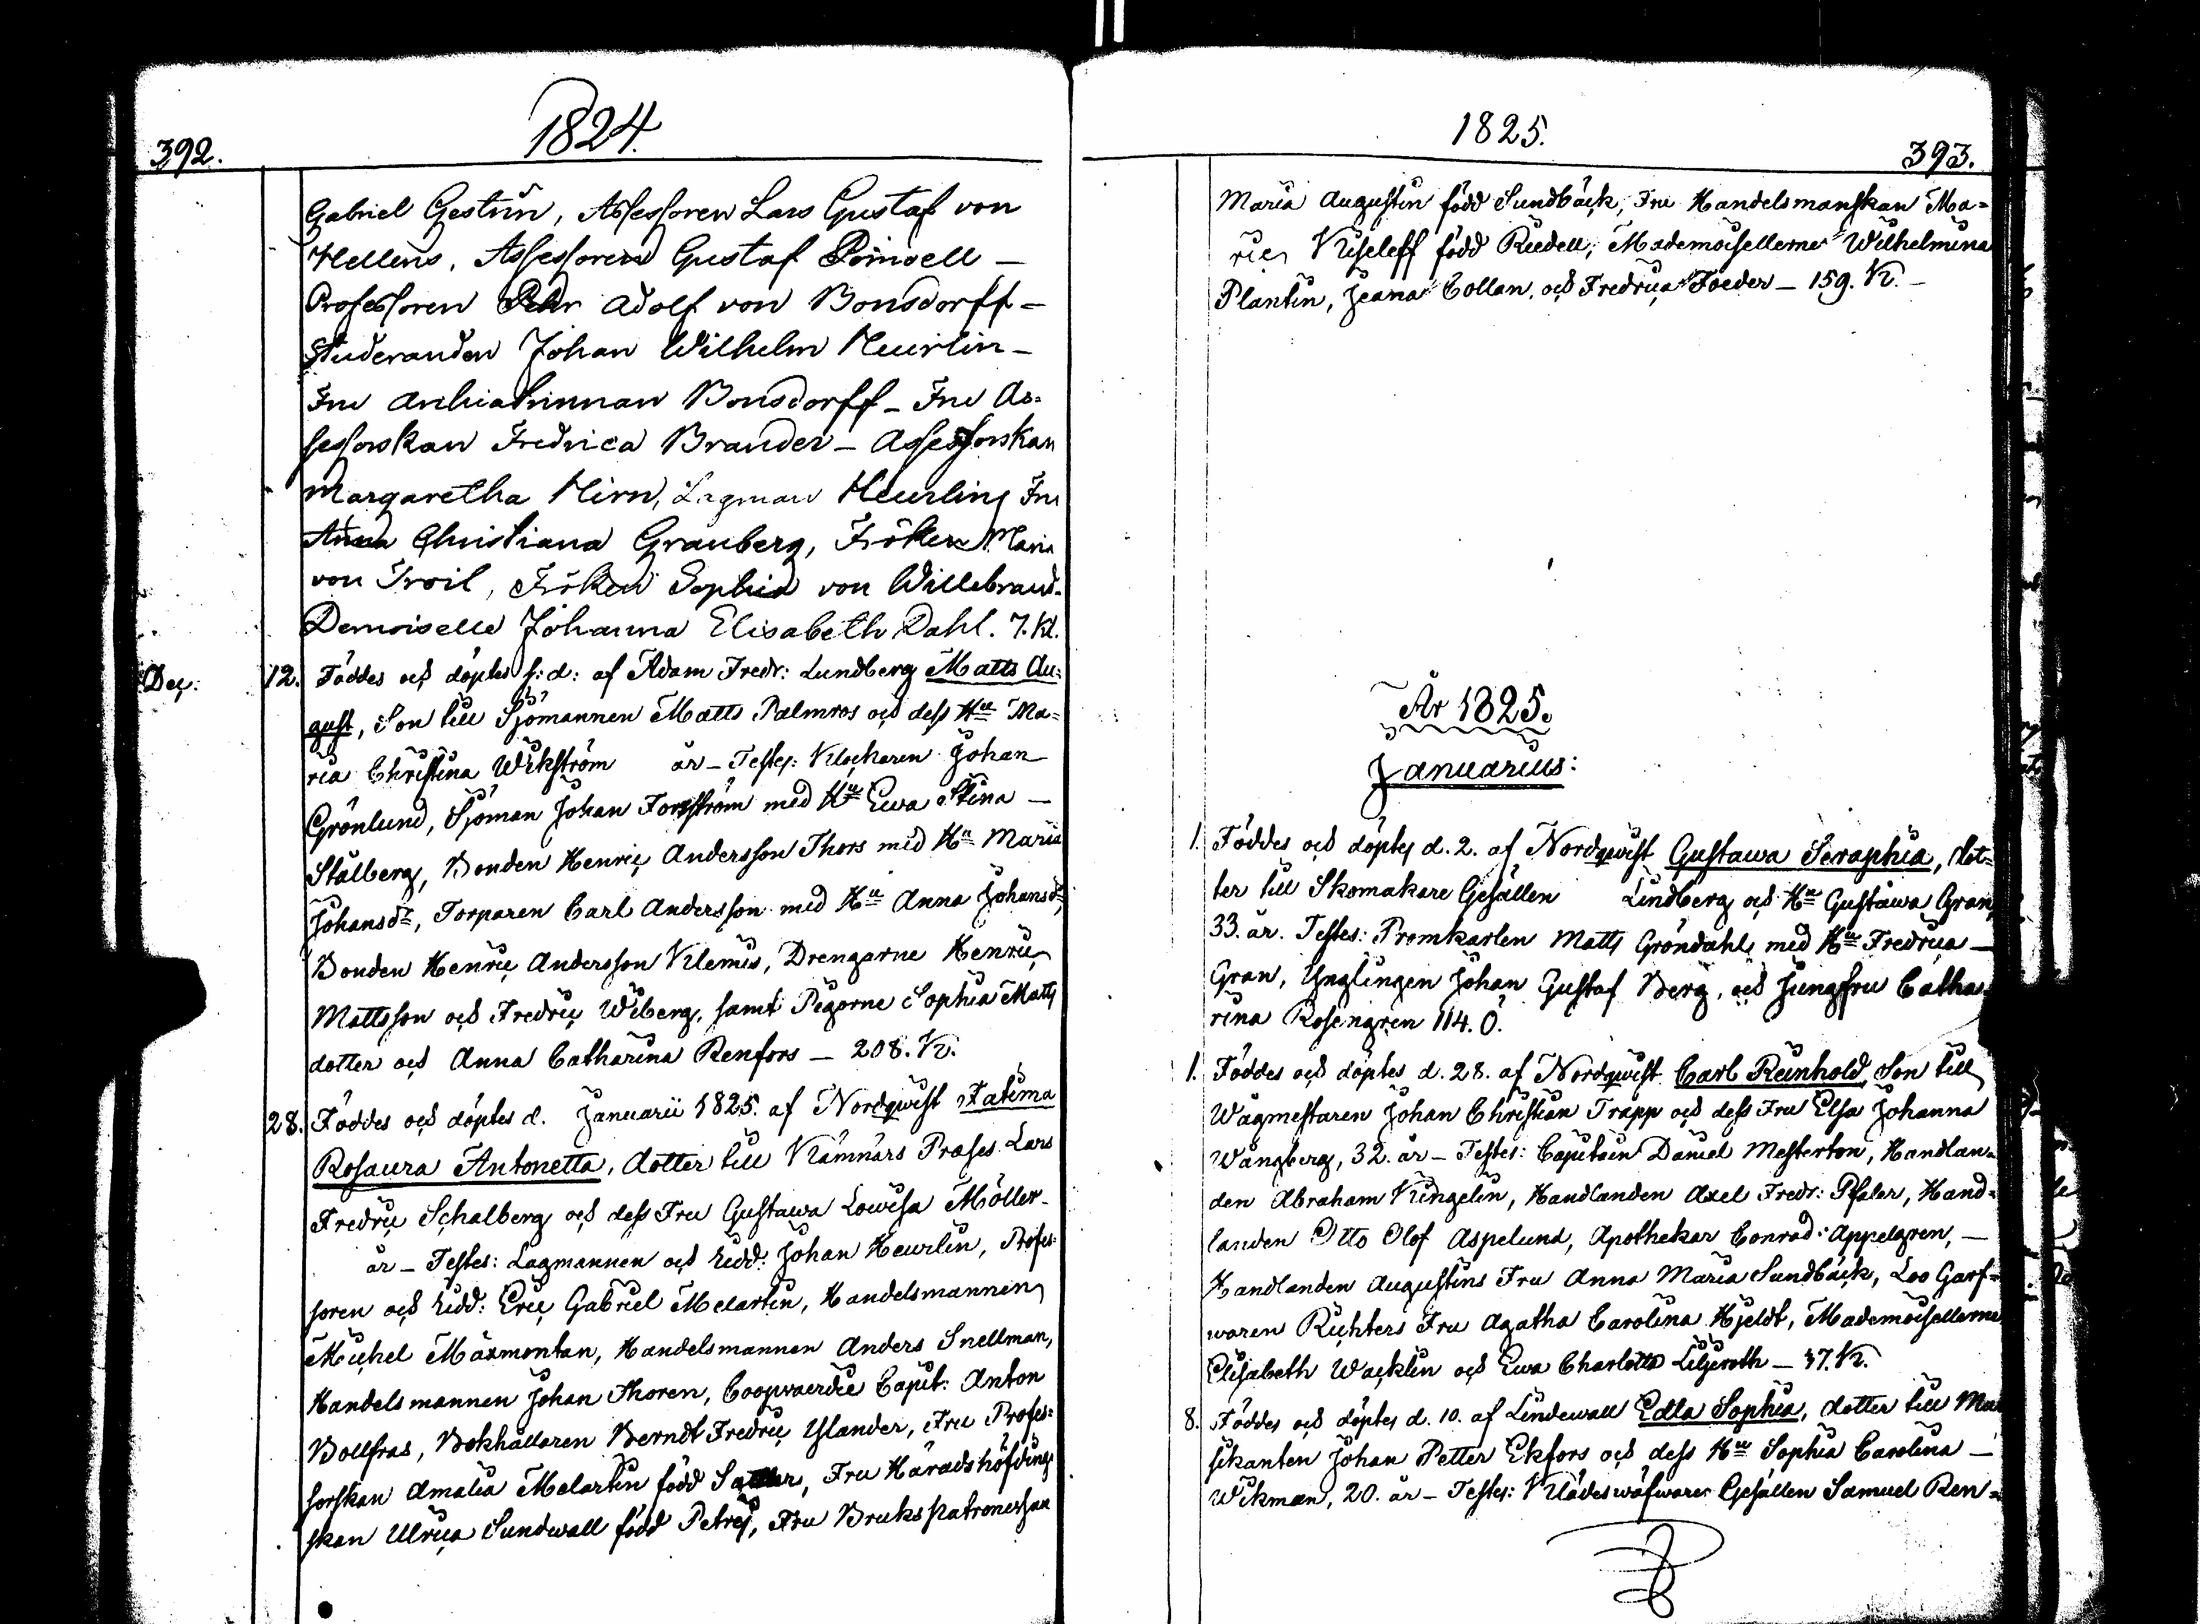 392.
1824.
Gabriel Gestrin, Assessoren Lars Gustaf von
Hellens, Assessoren Gustaf Poinsell –
Professoren Pehr Adolf von Bonsdorff –
Studeranden Johan Wilhelm Heurlin –
Fru Archiatrinnan Bonsdorff – Fru As=
sessorskan Fredrica Brander – Assessorskan
Margaretha Hirn, Lagman Heurlins Fru
Anna Christiana Granberg, Fröken Maria
von Troil, Fröken Sophia von Willebrand.
Demoiselle Johanna Elisabeth Dahl. 7. Kl.
Dec: 12. Föddes och döptes s: d: af Adam Fredr: Lundberg Matts Au=
gust, Son till Sjömannen Matts Palmros och dess Hu Ma=
ria Christina Wikström år – Testes: Klockaren Johan
Grönlund, Sjöman Johan Forsström med Hu Ewa Stina –
Stålberg, Bonden Henric Andersson Thors med Hu Maria
Johansdr, Torparen Carl Andersson med Hu Anna Johansdr,
Bonden Henric Andersson Klemis, Drengarne Henric
Mattsson och Fredric Wiberg, samt Pigorne Sophia Matts
dotter och Anna Catharina Renfors – 208. Kr.
28. Föddes och döptes d. Januarii 1825. af Nordqwist Fatima
Rosaura Antonetta, dotter till Kämnärs Præses Lars
Fredric Schalberg och dess Fru Gustawa Lowisa Möller –
år – Testes: Lagmannen och Ridd: Johan Heurlin, Profes=
soren och Ridd: Eric Gabriel Melartin, Handelsmannen
Michel Maxmontan, Handelsmannen Anders Snellman,
Handelsmannen Johan Thoren, Coopvaerdie Capit: Anton
Bollfras, Bokhållaren Berndt Fredric Ylander, Fru Profes=
sorskan Amalia Melartin född Sattler, Fru Häradshöfding
skan Ulrica Sundwall född Petrej, Fru Brukspatronessan
1825.
393.
Maria Augustin född Sundbäck, Fru Handelsmanskan Ma=
rie Kiseleff född Riedell, Mademoisellerne Wilhelmina
Plantin, Jeana Collan, och Fredrica Foeder – 159. Kr. –
År 1825.
Januarius:
1. Föddes och döptes d. 2. af Nordqwist Gustawa Seraphia, dot=
ter till Skomakare Gesällen Lindberg och Hu Gustawa Gran,
33. år. Testes: Promkarlen Matts Gröndahl, med Hu Fredrica –
Gran, Ynglingen Johan Gustaf Berg, och Jungfru Catha=
rina Rosengren 114. Ö.
1. Föddes och döptes d. 28. af Nordqwist Carl Reinhold, Son till
Wågmestaren Johan Christian Trapp och dess Fru Elsa Johanna
Wångberg, 32. år – Testes: Capitain Daniel Mesterton, Handlan=
den Abraham Kingelin, Handlanden Axel Fredr: Pfaler, Hand=
landen Otto Olof Aspelund, Apothekar Conrad Appelgren, –
Handlanden Augustins Fru Anna Maria Sundbäck, Loo Garf=
waren Richters Fru Agatha Carolina Hjeldt, Mademoisellerne
Elisabeth Wacklin och Ewa Charlotta Liljeroth – 37. Kr.
8. Föddes och döptes d. 10. af Lindewall Edla Sophia, dotter till Mu
sikanten Johan Petter Ekfors och dess Hu Sophia Carolina –
Wikman, 20. år – Testes: Klädeswäfware Gesällen Samuel Ren=